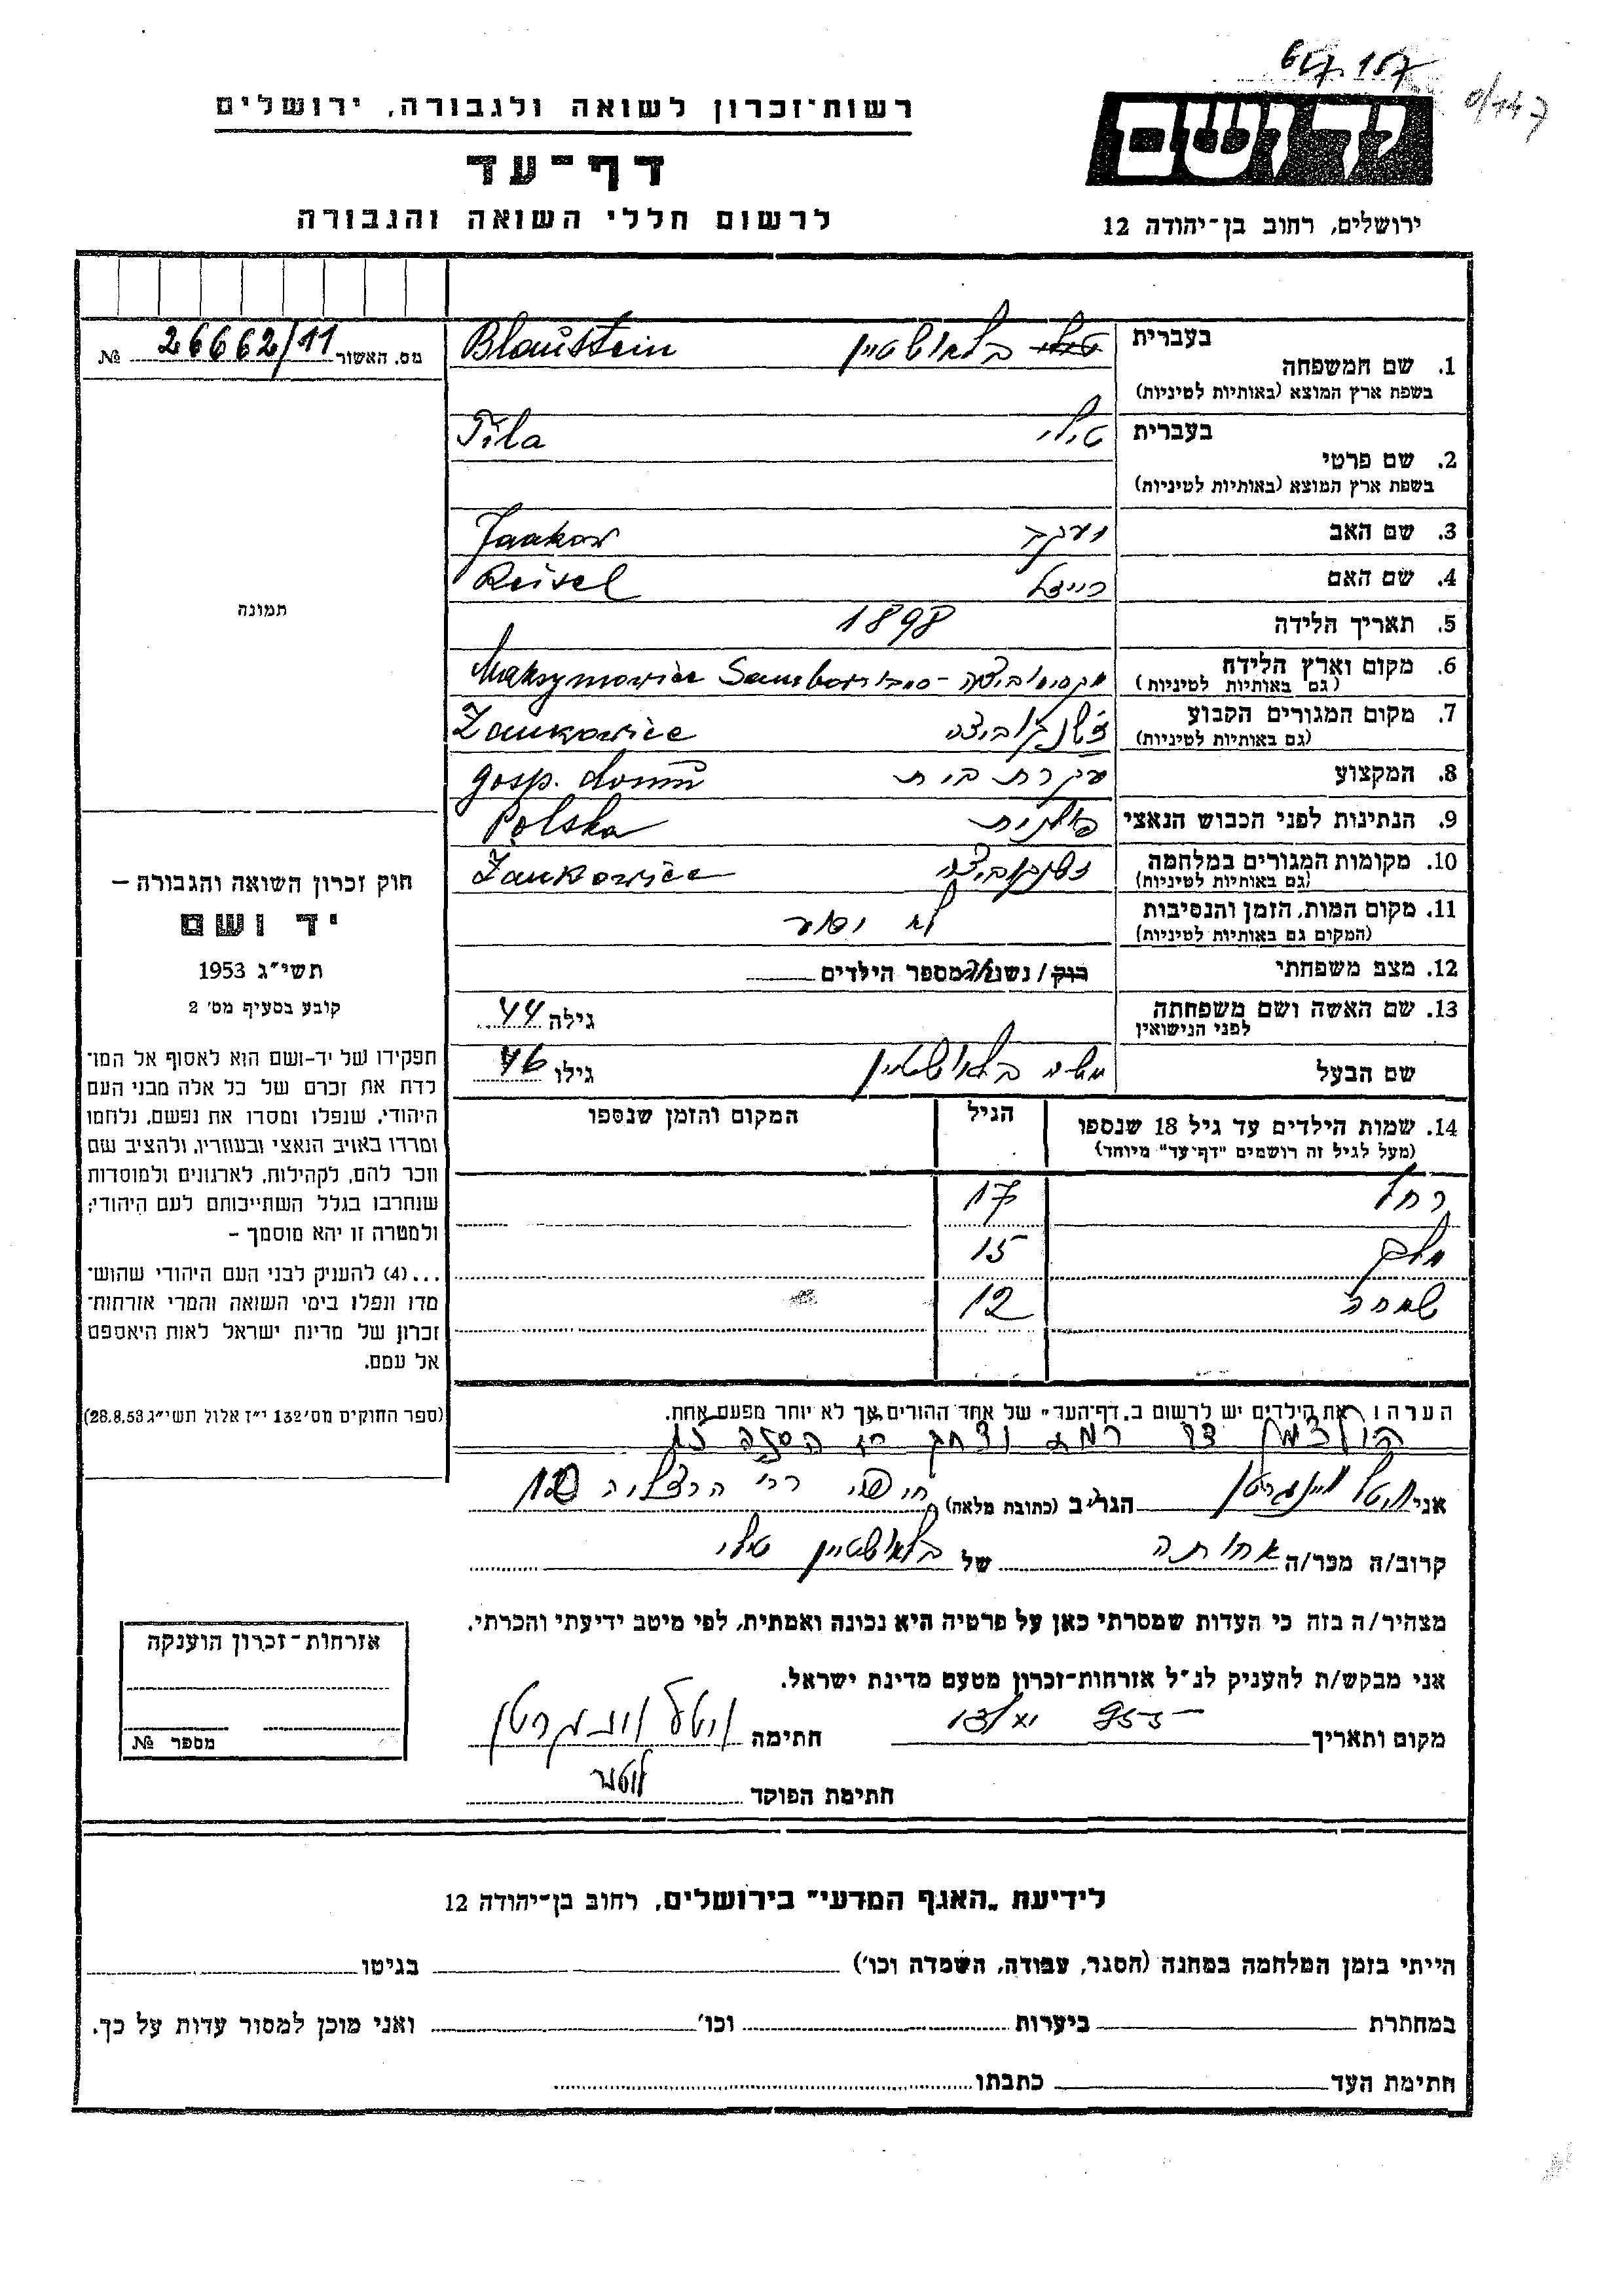 רשות־זכרון לשואה ולגבורה, ירושלים
דף־עד
לרשום חללי השואה והגבורה
יד ושם
ירושלים, רחוב בן־יהודה 12
מס. האשור 26662/11 №
תמונה
חוק זכרון השואה והגבורה —
יד ושם
תשי״ג 1953
קובע בסעיף מס׳ 2
תפקידו של יד-ושם הוא לאסוף אל המו־
לדת את זכרם של כל אלה מבני העם
היהודי, שנפלו ומסרו את נפשם, נלחמו
ומרדו באויב הנאצי ובעוזריו, ולהציב שם
וזכר להם, לקהילות, לארגונים ולמוסדות
שנחרבו בגלל השתייכותם לעם היהודי;
ולמטרה זו יהא מוסמך –
...(4) להעניק לבני העם היהודי שהוש־
מדו ונפלו בימי השואה והמרי אזרחות־
זכרון של מדינת ישראל לאות היאספם
אל עמם.
(ספר החוקים מס׳ 132 י״ז אלול תשי״ג 28.8.53)
1. שם המשפחה בעברית בלאושטיין Blaustein
בשפת ארץ המוצא (באותיות לטיניות)
2. שם פרטי בעברית טילי Tila
בשפת ארץ המוצא (באותיות לטיניות)
3. שם האב יעקב Jaakow
4. שם האם רייזל Reisel
5. תאריך הלידה 1898
6. מקום וארץ הלידה Maksymowice
(גם באותיות לטיניות)
7. מקום המגורים הקבוע
(גם באותיות לטיניות)
8. המקצוע עקרת בית gosp.
9. הנתינות לפני הכבוש הנאצי פולנית Polska
10. מקומות המגורים במלחמה
(גם באותיות לטיניות)
11. מקום המות, הזמן והנסיבות לא ידוע
(המקום גם באותיות לטיניות)
12. מצב משפחתי רוק / נשוי מספר הילדים
13. שם האשה ושם משפחתה גילה 44
לפני הנישואין
שם הבעל משה בלאושטיין גילו 46
14. שמות הילדים עד גיל 18 שנספו הגיל המקום והזמן שנספו
(מעל לגיל זה רושמים "דף־עד" מיוחד)
רחל 17
15
שמחה 12
הערה: את הילדים יש לרשום ב„דף־העד״ של אחד ההורים אך לא יותר מפעם אחת.
אני הגר/ה ב (כתובת מלאה) חיפה
קרוב/ה מכר/ה אחותה של בלאושטיין טילי
מצהיר/ה בזה כי העדות שמסרתי כאן על פרטיה היא נכונה ואמתית, לפי מיטב ידיעתי והכרתי.
אני מבקש/ת להעניק לנ״ל אזרחות-זכרון מטעם מדינת ישראל.
מקום ותאריך חתימה
חתימת הפוקד
אזרחות-זכרון הוענקה
מספר №
לידיעת „האגף המדעי״ בירושלים, רחוב בן־יהודה 12
הייתי בזמן המלחמה במחנה (הסגר, עבודה, השמדה וכו׳) בגיטו
במחתרת ביערות וכו׳ ואני מוכן למסור עדות על כך.
חתימת העד כתבתו